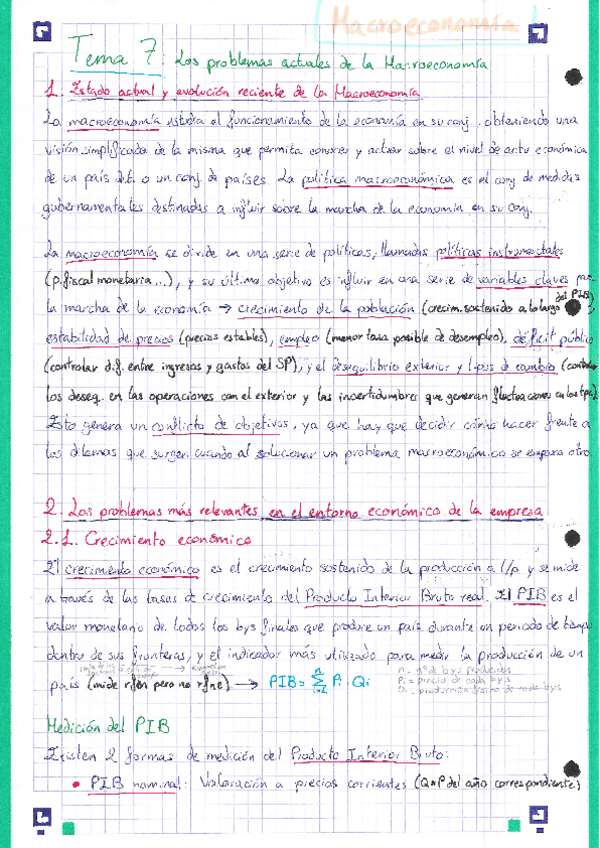 Macroeconomía
Tema 7: Los problemas actuales de la Macroeconomía
1. Estado actual y evolución reciente de la Macroeconomía
La macroeconomía estudia el funcionamiento de la economía en su conj. obteniendo una
visión simplificada de la misma que permita conocer y actuar sobre el nivel de actv económica
de un país det. o un conj de países. La política macroeconómica es el conj de medidas
gubernamentales destinadas a influir sobre la marcha de la economía en su conj.
La macroeconomía se divide en una serie de políticas, llamadas políticas instrumentales
(p.fiscal monetaria...), y su último objetivo es influir en una serie de variables claves par
la marcha de la economía → crecimiento de la población (crecim. sostenido a lo largo del PIB),
estabilidad de precios (precios estables), empleo (menor tasa posible de desempleo), déficit público
(controlar dif. entre ingresos y gastos del SP), y el desequilibrio exterior y tipos de cambio (controlar
los deseq. en las operaciones con el exterior y las incertidumbres que generan fluctuaciones en los tpc).
Esto genera un conflicto de objetivos, ya que hay que decidir cómo hacer frente a
los dilemas que surgen cuando al solucionar un problema macroeconómico se empeora otro.
2. Los problemas más relevantes en el entorno económico de la empresa
2.1. Crecimiento económico
El crecimiento económico es el crecimiento sostenido de la producción a l/p y se mide
a través de las tasas de crecimiento del Producto Interior Bruto real. El PIB es el
valor monetario de todos los bys finales que produce un país durante un periodo de tiempo
dentro de sus fronteras, y el indicador más utilizado para medir la producción de un
país (mide rfén pero no rfne) → PIB = Σ Pi · Qi
n = nº de bys producidos
Pi = precio de cada bys
Qi = producción física de cada bys
Medición del PIB
Existen 2 formas de medición del Producto Interior Bruto:
• PIB nominal: Valoración a precios corrientes (Q×P del año correspondiente)